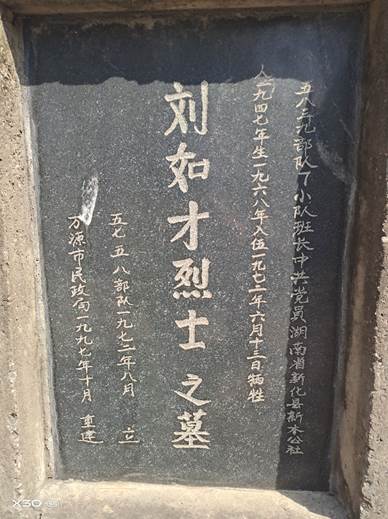 五八三九部队丁小队班长中共党员湖南省新化县新本公社
人一九四七年生一九六八年入伍一九七二年六月十三日牺牲
刘如才烈士之墓
五七五八部队一九七二年八月 立
万源市民政局一九九七年十月 重建
X30